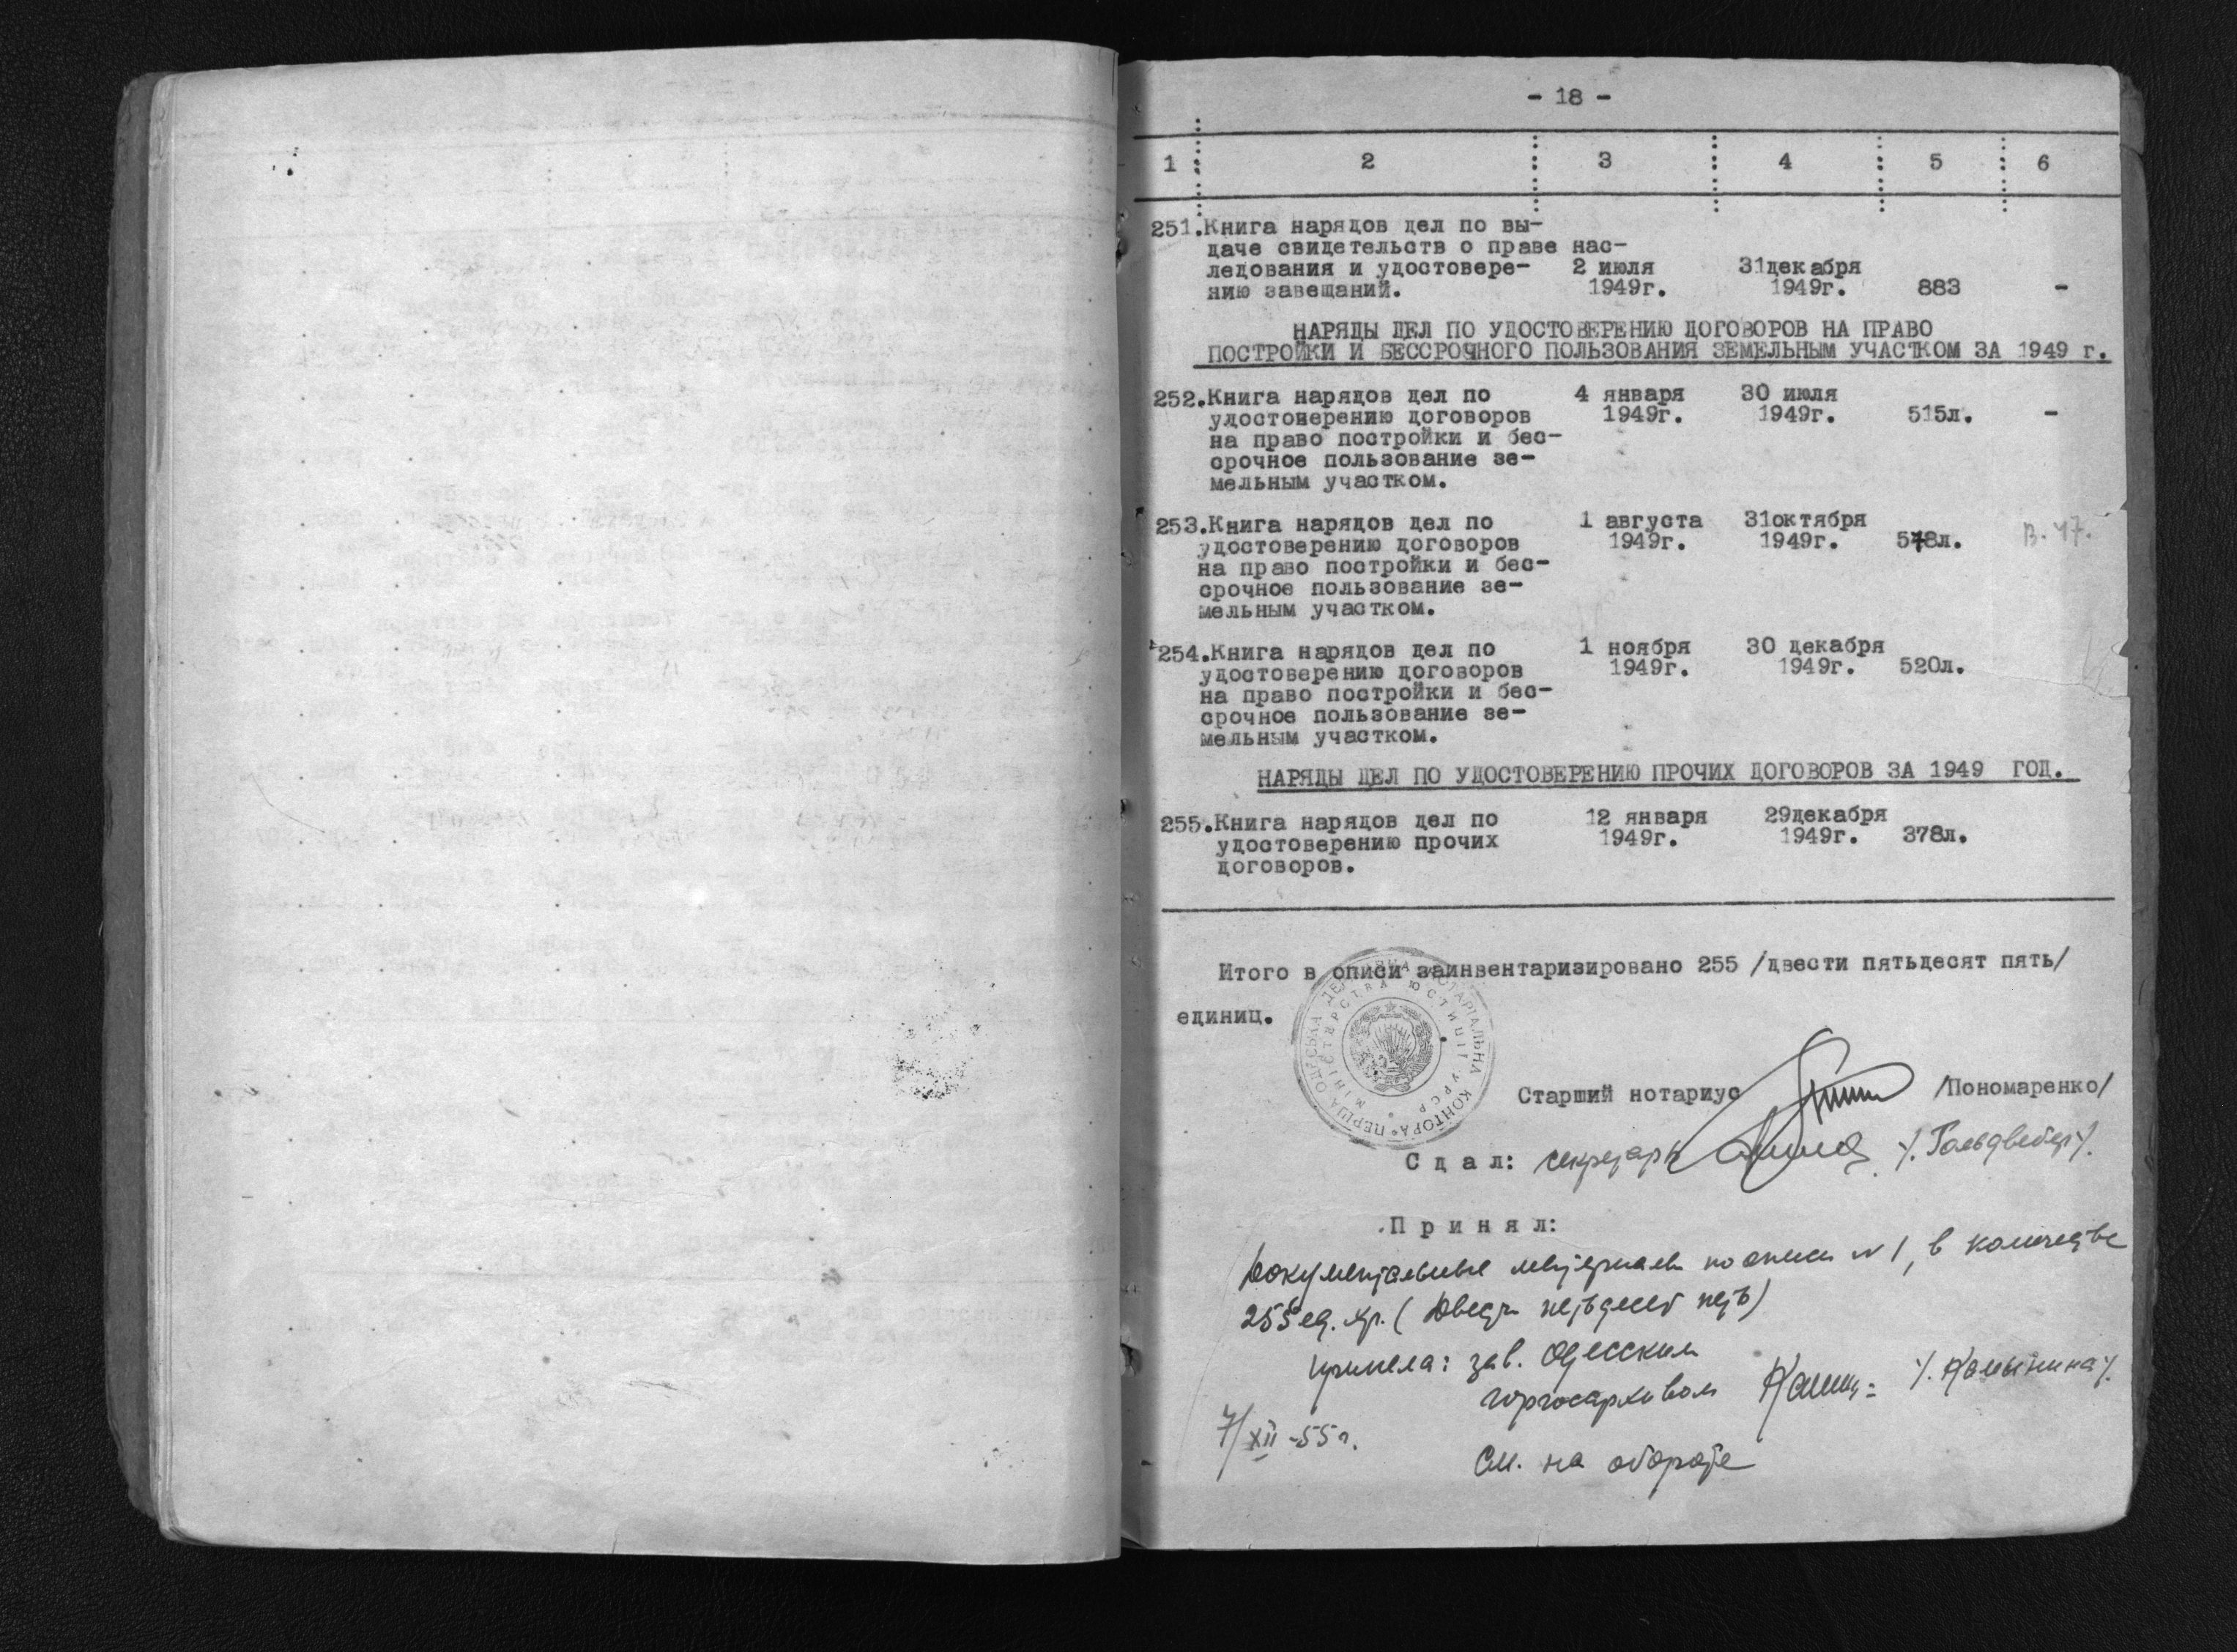 - 18 -
1 2 3 4 5 6
251. Книга нарядов дел по вы-
даче свидетельств о праве нас-
ледования и удостовере- 2 июля 31декабря
нию завещаний. 1949г. 1949г. 883 -
НАРЯДЫ ДЕЛ ПО УДОСТОВЕРЕНИЮ ДОГОВОРОВ НА ПРАВО
ПОСТРОЙКИ И БЕССРОЧНОГО ПОЛЬЗОВАНИЯ ЗЕМЕЛЬНЫМ УЧАСТКОМ ЗА 1949 г.
252. Книга нарядов дел по 4 января 30 июля
удостоверению договоров 1949г. 1949г. 515л. -
на право постройки и бес-
срочное пользование зе-
мельным участком.
253. Книга нарядов дел по 1 августа 31октября
удостоверению договоров 1949г. 1949г. 578л. В. 47.
на право постройки и бес-
срочное пользование зе-
мельным участком.
254. Книга нарядов дел по 1 ноября 30 декабря
удостоверению договоров 1949г. 1949г. 520л.
на право постройки и бес-
срочное пользование зе-
мельным участком.
НАРЯДЫ ДЕЛ ПО УДОСТОВЕРЕНИЮ ПРОЧИХ ДОГОВОРОВ ЗА 1949 ГОД.
255. Книга нарядов дел по 12 января 29декабря
удостоверению прочих 1949г. 1949г. 378л.
договоров.
Итого в описи заинвентаризировано 255 /двести пятьдесят пять/
единиц.
ПЕРША ОДЕСЬКА ДЕРЖАВНА НОТАРІАЛЬНА КОНТОРА
МІНІСТЕРСТВА ЮСТИЦІЇ УРСР
Старший нотариус /Пономаренко/
С д а л: секретарь /. Гольдвебер/.
П р и н я л:
Документальные материалы по описи N 1, в количестве
255 ед. хр. (Двести пятьдесят пять)
приняла: зав. Одесским
горгосархивом /. Калынина/.
7/XII-55г.
См. на обороте